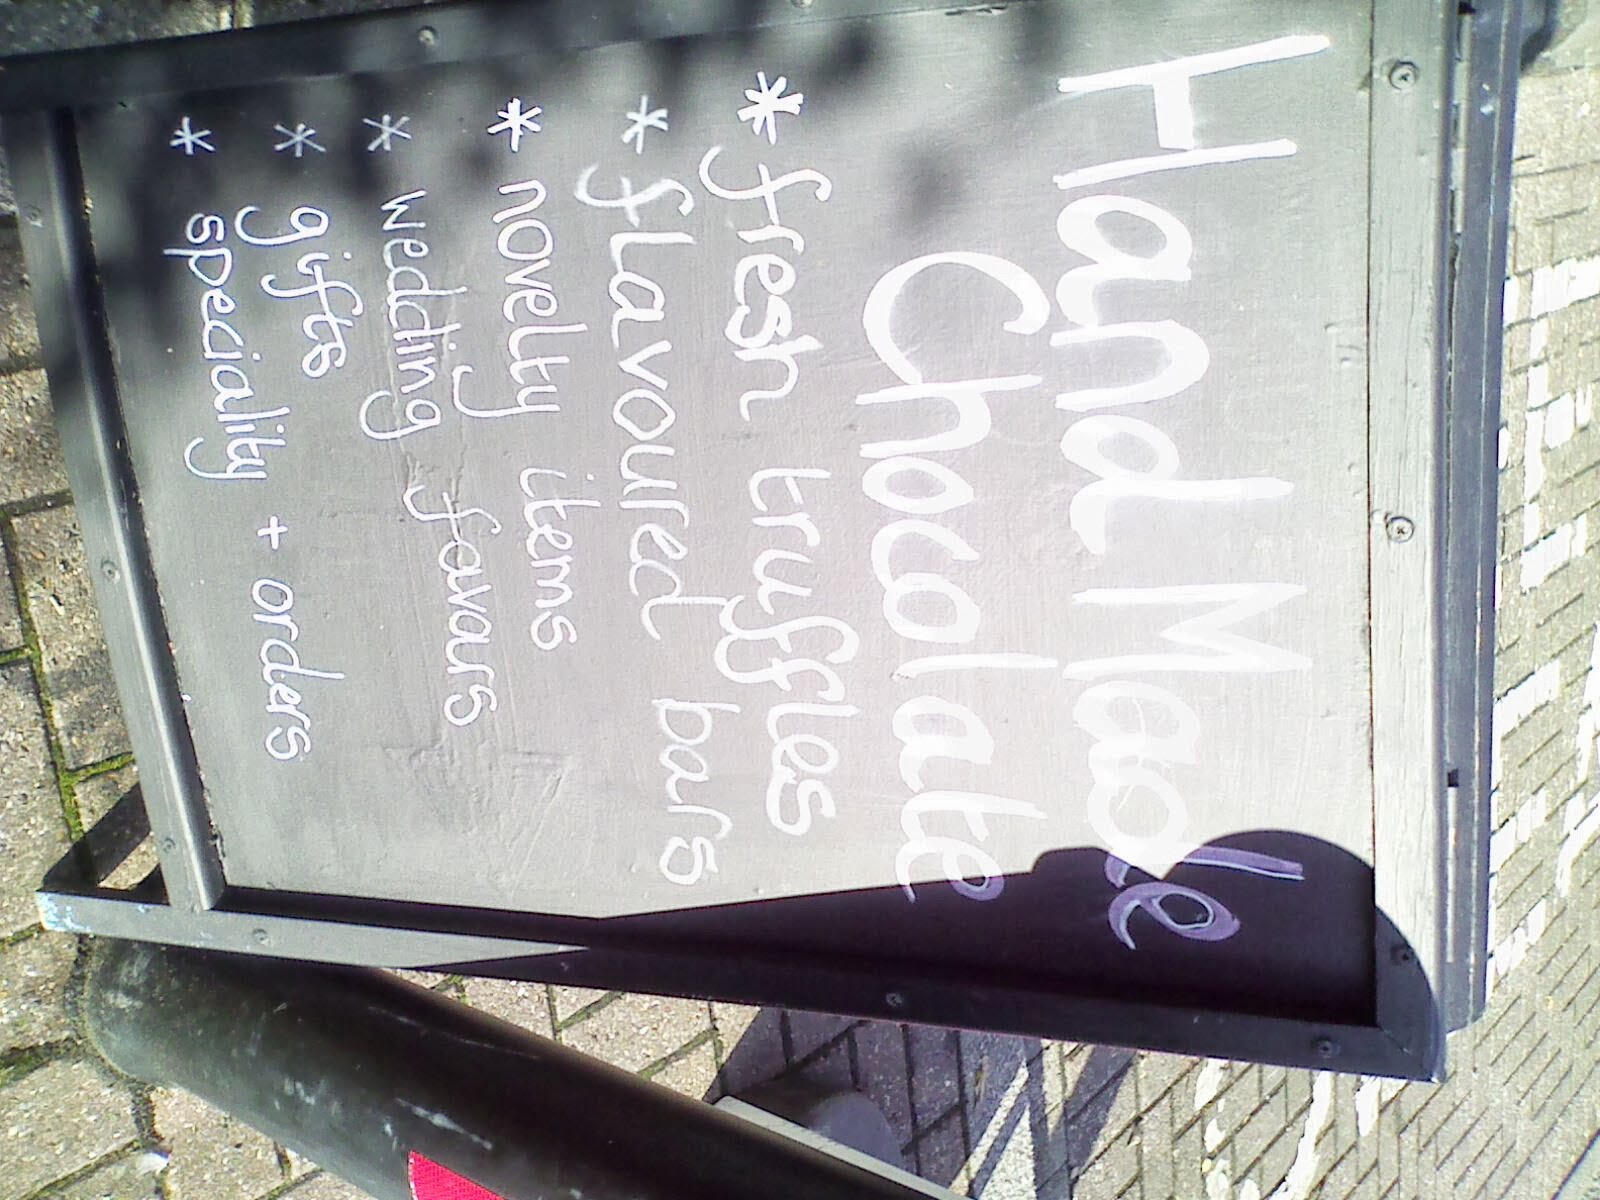 Hand Made
Chocolate
* fresh truffles
* flavoured bars
* novelty items
* wedding favours
* gifts
* speciality + orders